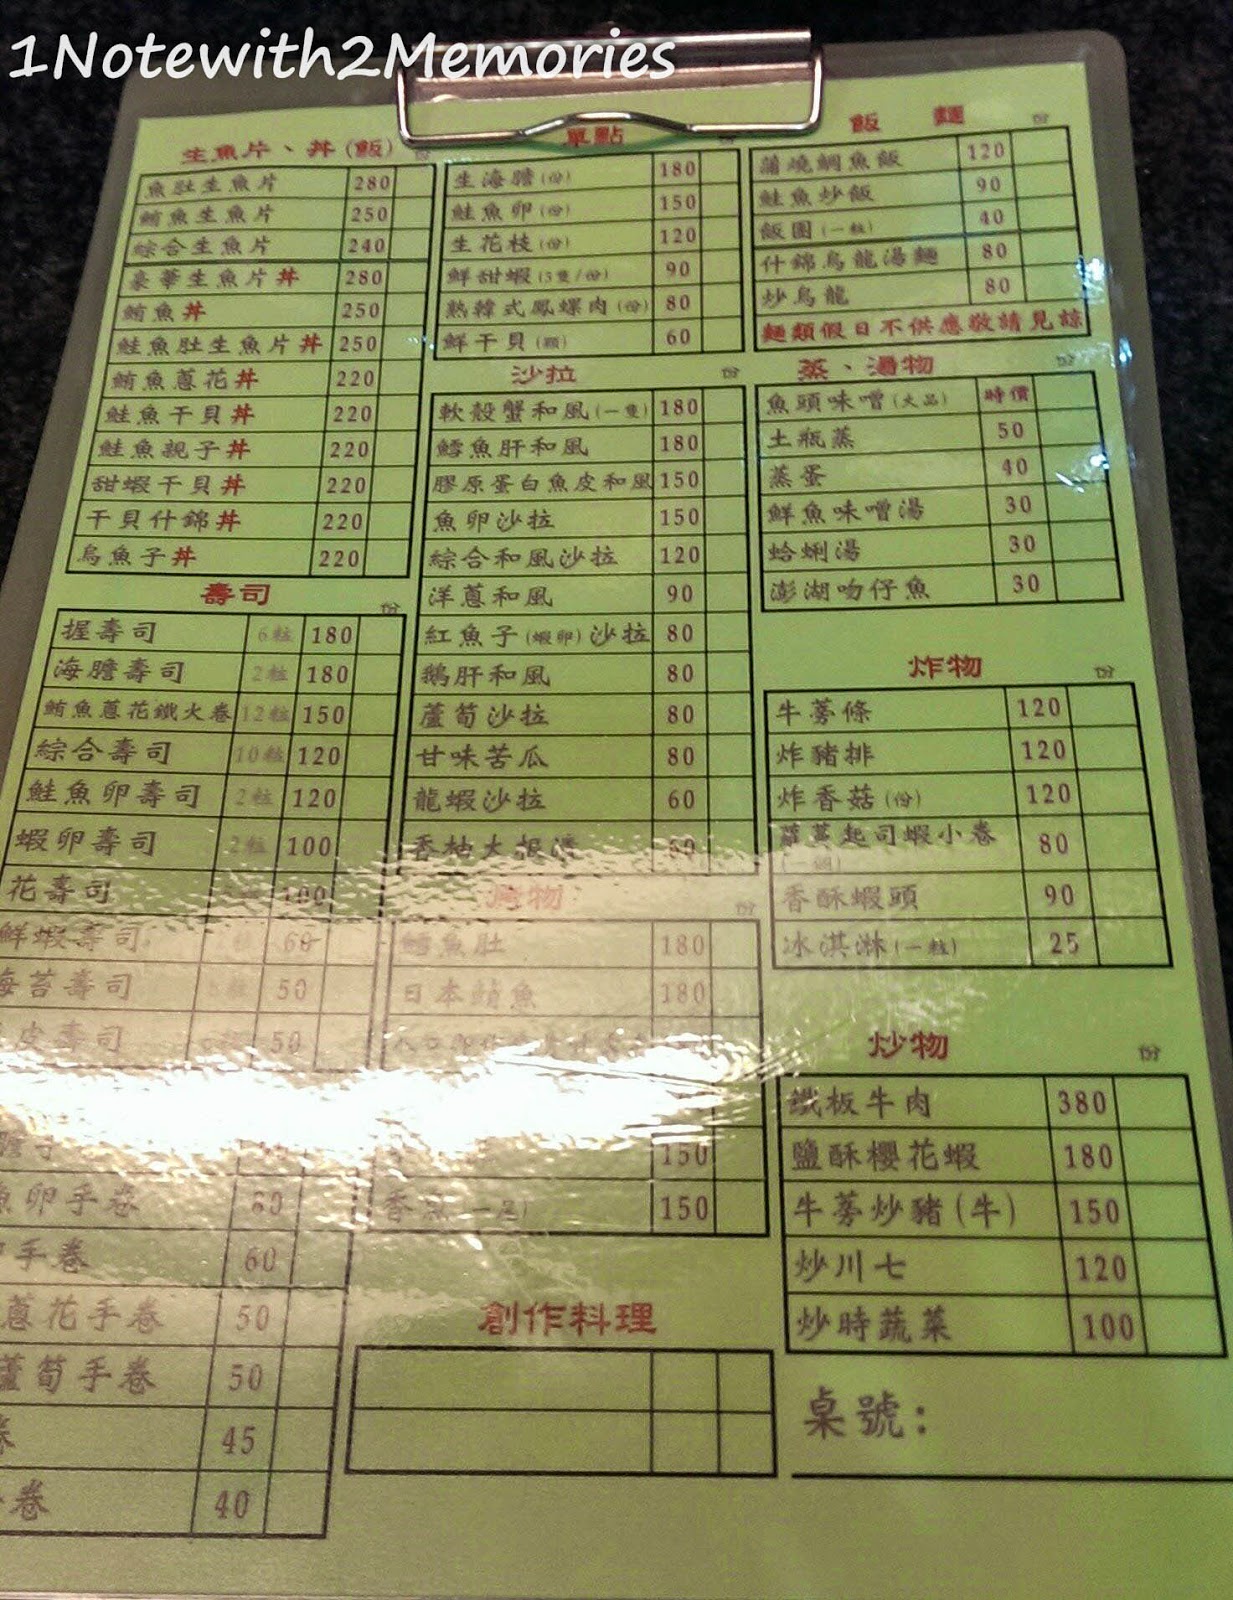 1Notewith2Memories
生魚片、丼(飯) 份
魚肚生魚片 280
鮪魚生魚片 250
綜合生魚片 240
豪華生魚片丼 280
鮪魚丼 250
鮭魚肚生魚片丼 250
鮪魚蔥花丼 220
鮭魚干貝丼 220
鮭魚親子丼 220
甜蝦干貝丼 220
干貝什錦丼 220
烏魚子丼 220
壽司 份
握壽司 6粒 180
海膽壽司 2粒 180
鮪魚蔥花鐵火卷 12粒 150
綜合壽司 10粒 120
鮭魚卵壽司 2粒 120
蝦卵壽司 2粒 100
花壽司 100
鮮蝦壽司 60
海苔壽司 50
皮壽司 50
魚卵手卷 60
手卷 60
蔥花手卷 50
蘆筍手卷 50
卷 45
卷 40
單點 份
生海膽(份) 180
鮭魚卵(份) 150
生花枝(份) 120
鮮甜蝦(3隻/份) 90
熟韓式鳳螺肉(份) 80
鮮干貝(顆) 60
沙拉 份
軟殼蟹和風(一隻) 180
鱈魚肝和風 180
膠原蛋白魚皮和風 150
魚卵沙拉 150
綜合和風沙拉 120
洋蔥和風 90
紅魚子(蝦卵)沙拉 80
鵝肝和風 80
蘆筍沙拉 80
甘味苦瓜 80
龍蝦沙拉 60
香柚大根漬 60
物 份
鱈魚肚 180
日本鯖魚 180
150
香魚(一尾) 150
創作料理
飯 麵 份
蒲燒鯛魚飯 120
鮭魚炒飯 90
飯團(一粒) 40
什錦烏龍湯麵 80
炒烏龍 80
麵類假日不供應敬請見諒
蒸、湯物 份
魚頭味噌(大品) 時價
土瓶蒸 50
蒸蛋 40
鮮魚味噌湯 30
蛤蜊湯 30
澎湖吻仔魚 30
炸物 份
牛蒡條 120
炸豬排 120
炸香菇(份) 120
起司蝦小卷 80
香酥蝦頭 90
冰淇淋(一粒) 25
炒物 份
鐵板牛肉 380
鹽酥櫻花蝦 180
牛蒡炒豬(牛) 150
炒川七 120
炒時蔬菜 100
桌號: